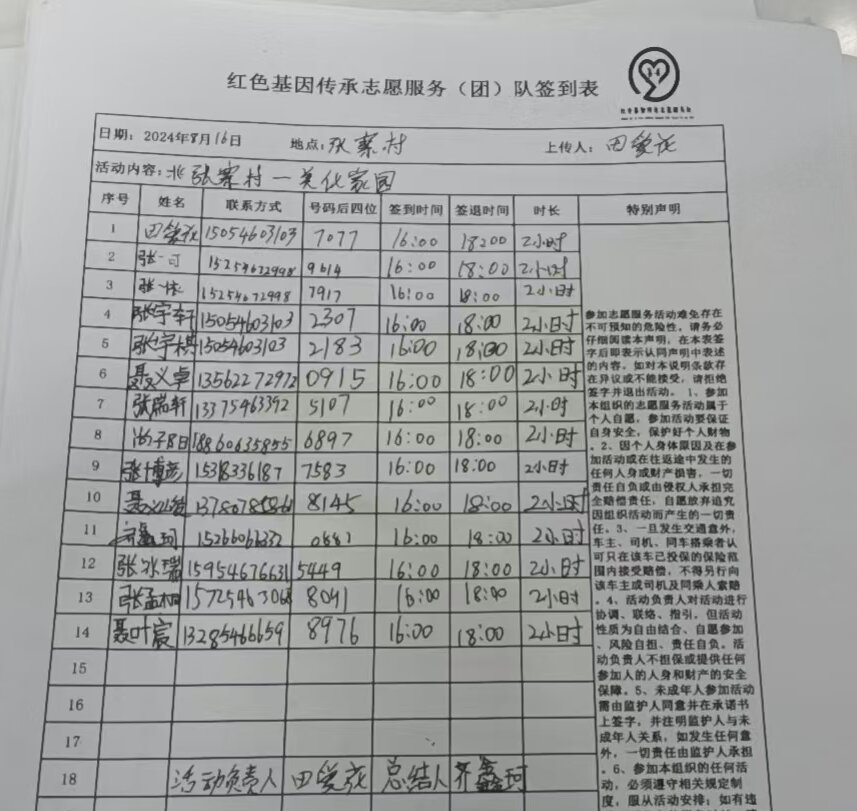 红色基因传承志愿服务（团）队签到表
日期：2024年8月16日 地点：张寨村 上传人：田爱花
活动内容：北张寨村一美化家园
序号 姓名 联系方式 号码后四位 签到时间 签退时间 时长 特别声明
1 田爱花 15054603103 7077 16:00 18:00 2小时
2 张一可 15254672998 9614 16:00 18:00 2小时
3 张一 15254672998 7917 16:00 18:00 2小时
4 张宇轩 15054603103 2307 16:00 18:00 2小时
5 张宇棋 15054603103 2183 16:00 18:00 2小时
6 聂义卓 13562272972 0915 16:00 18:00 2小时
7 张瑞轩 13375463392 5107 16:00 18:00 2小时
8 18860635855 6897 16:00 18:00 2小时
9 张博彦 15318336187 7583 16:00 18:00 2小时
10 聂义 13780785861 8145 16:00 18:00 2小时
11 齐鑫珂 15266066332 0882 16:00 18:00 2小时
12 张冰瑞 15954676631 5449 16:00 18:00 2小时
13 张孟桐 15725463068 8041 16:00 18:00 2小时
14 聂叶宸 13285466659 8976 16:00 18:00 2小时
15
16
17
18 活动负责人 田爱花 总结人 齐鑫珂
参加志愿服务活动难免存在
不可预知的危险性，请务必
仔细阅读本声明，在本表签
字后即表示认同声明中表述
的内容。如对本说明条款存
在异议或不能接受，请拒绝
签字并退出活动。1、参加
本组织的志愿服务活动属于
个人自愿，参加活动要保证
自身安全，保护好个人财物
。2、因个人身体原因及在参
加活动或在往返途中发生的
任何人身或财产损害，一切
责任自负或由侵权人承担完
全赔偿责任，自愿放弃追究
因组织活动而产生的一切责
任。3、一旦发生交通意外，
车主、司机、同车搭乘者认
可只在该车已投保的保险范
围内接受赔偿，不得另行向
该车主或司机及同乘人索赔
。4、活动负责人对活动进行
协调、联络、指引，但活动
性质为自由结合、自愿参加
、风险自担、责任自负。活
动负责人不担保或提供任何
参加人的人身和财产的安全
保障。5、未成年人参加活动
需由监护人同意并在承诺书
上签字，并注明监护人与未
成年人关系，如发生任何意
外，一切责任由监护人承担
。6、参加本组织的任何活
动，必须遵守相关规定制
度，服从活动安排；如有违